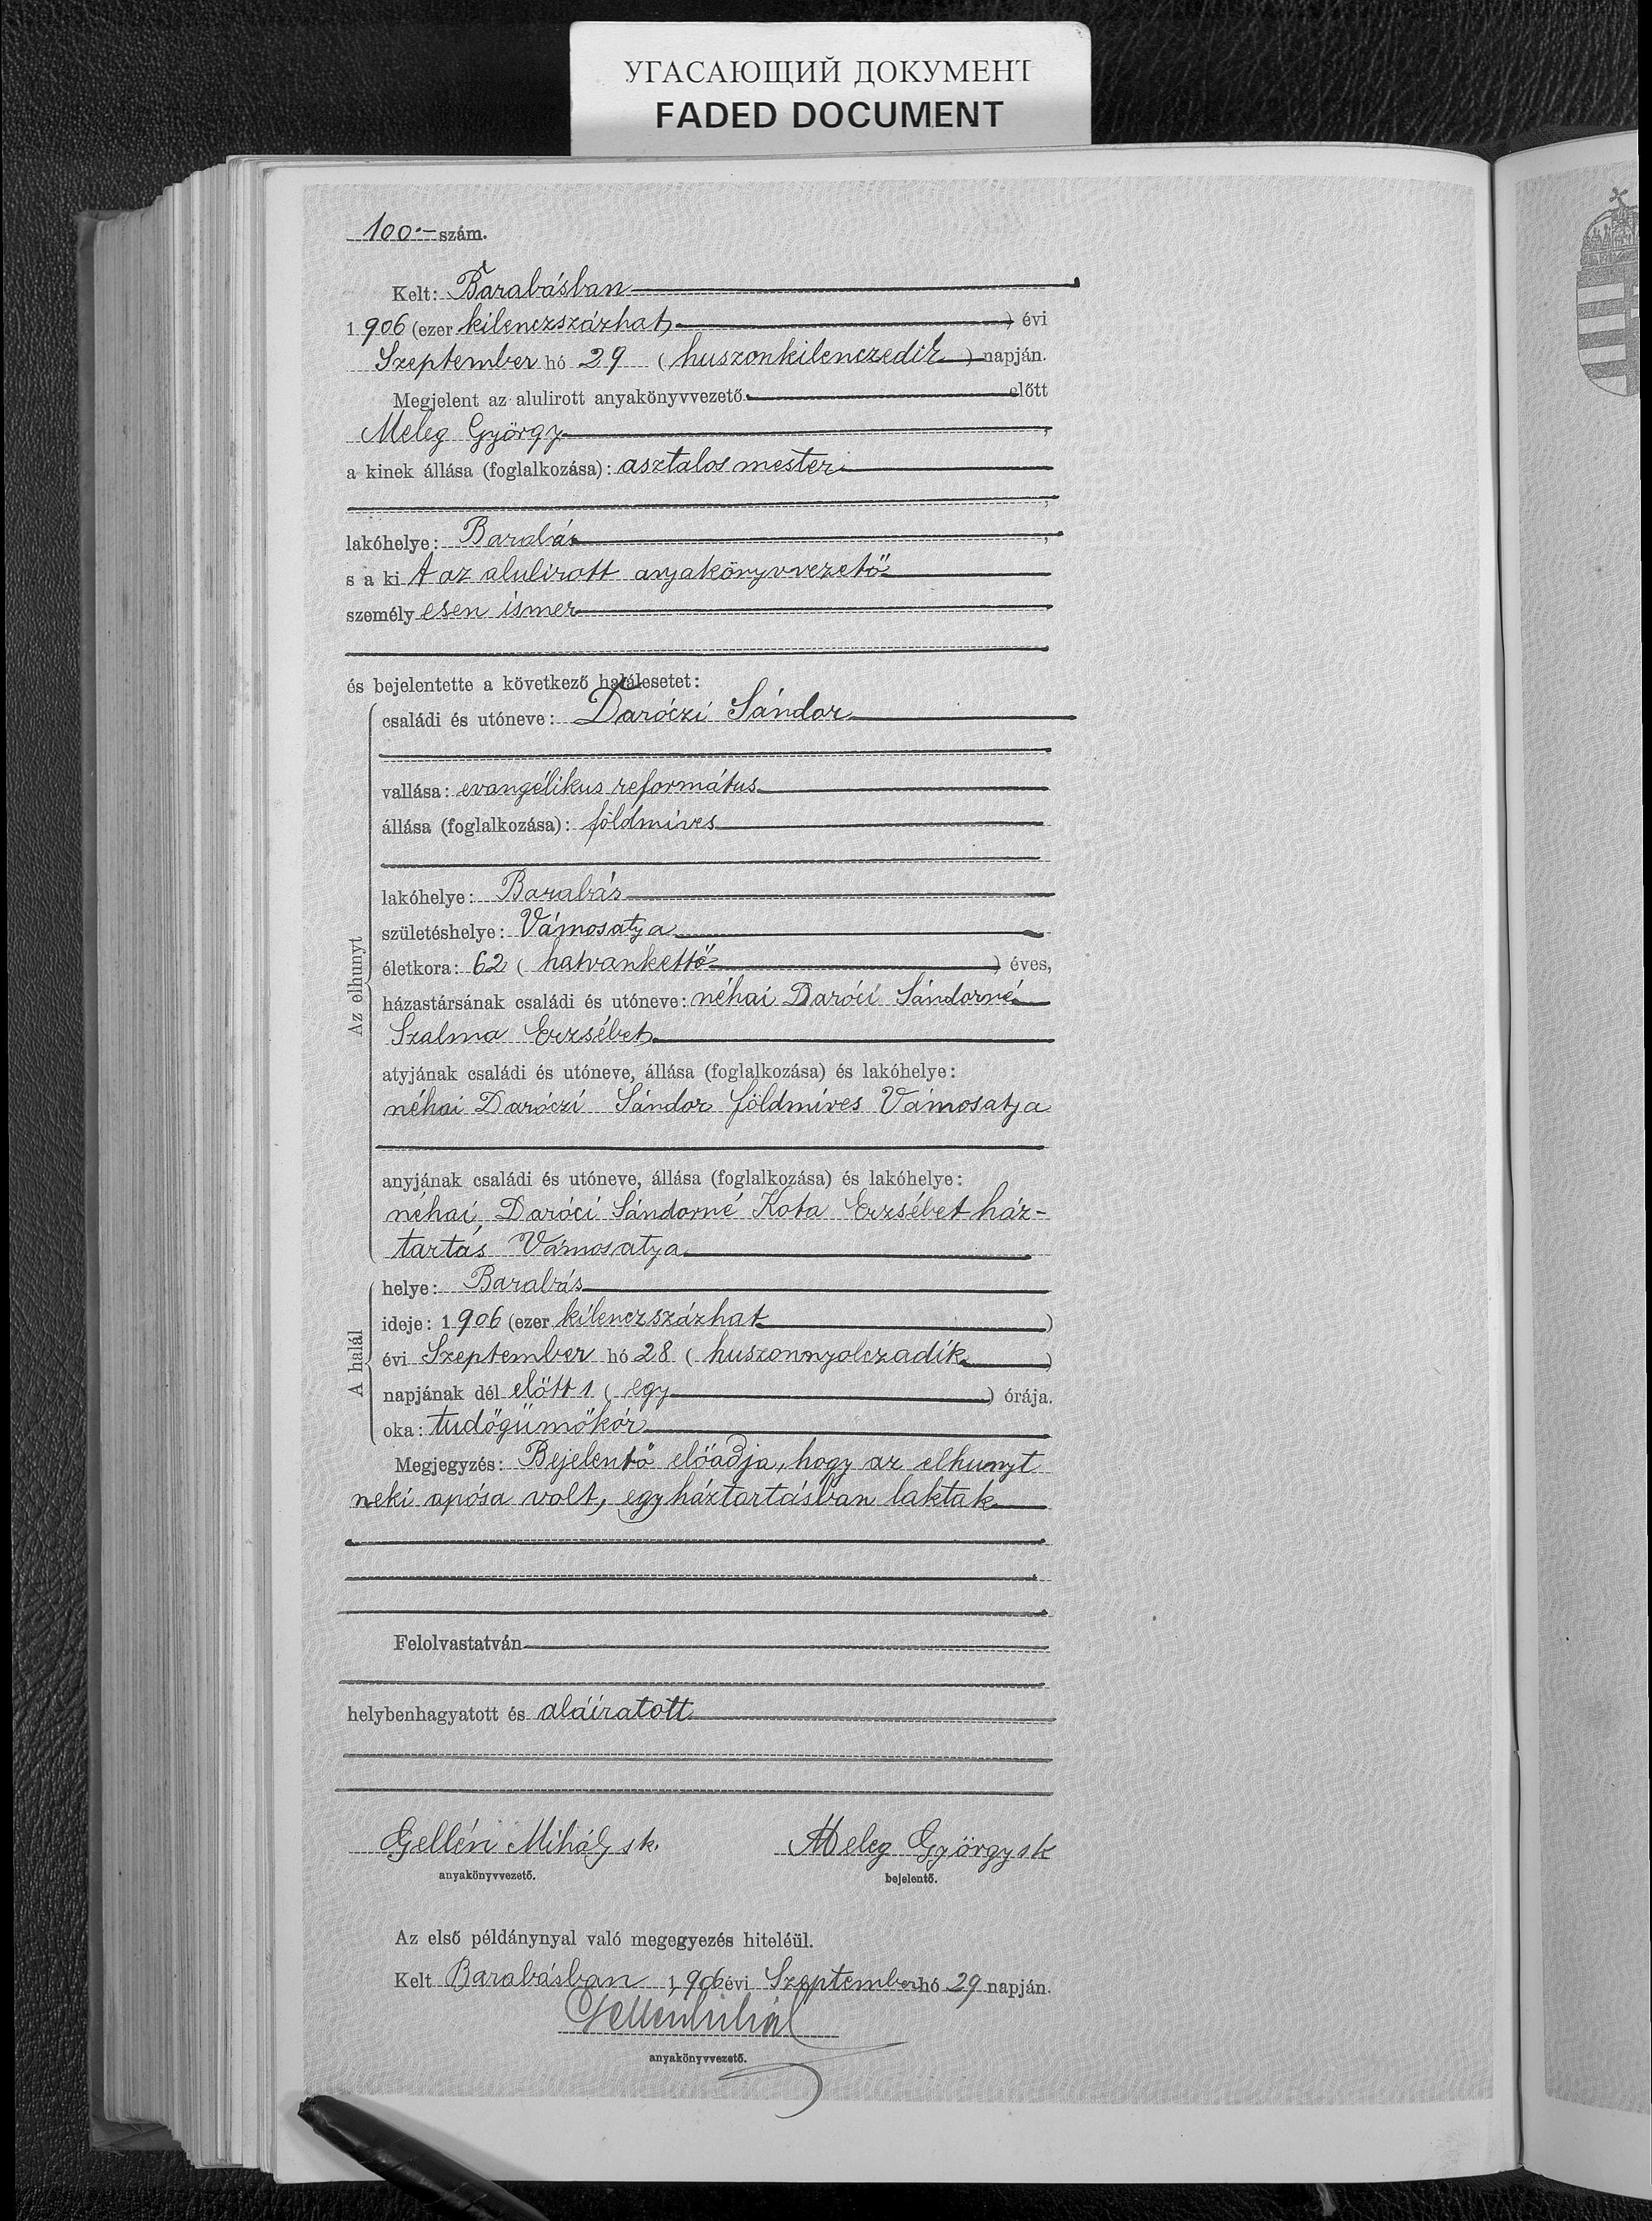 УГАСАЮЩИЙ ДОКУМЕНТ
FADED DOCUMENT
100.- szám.
Kelt: Barabásban
1906 (ezer kilenczszázhat) évi
Szeptember hó 29 (huszonkilenczedik) napján.
Megjelent az alulirott anyakönyvvezető előtt
Meleg György,
a kinek állása (foglalkozása): asztalos mester
,
lakóhelye: Barabás,
s a ki t az alulirott anyakönyvvezető
személy esen ismer
és bejelentette a következő halálesetet:
Az elhunyt
családi és utóneve: Daróczi Sándor
vallása: evangélikus református
állása (foglalkozása): földmives
lakóhelye: Barabás
születéshelye: Vámosatya
életkora: 62 (hatvankettő) éves,
házastársának családi és utóneve: néhai Daróci Sándorné
Szalma Erzsébet
atyjának családi és utóneve, állása (foglalkozása) és lakóhelye:
néhai Daróczi Sándor földmíves Vámosatya
anyjának családi és utóneve, állása (foglalkozása) és lakóhelye:
néhai, Daróci Sándorné Kota Erzsébet ház-
tartás Vámosatya
A halál
helye: Barabás
ideje: 1906 (ezer kilenczszázhat)
évi Szeptember hó 28 (huszonnyolczadik)
napjának dél előtt 1 (egy) órája.
oka: tudőgümőkór
Megjegyzés: Bejelentő előadja, hogy az elhunyt
neki apósa volt, egy háztartásban laktak
Felolvastatván
helybenhagyatott és aláiratott
Gellén Mihály sk. Meleg György sk
anyakönyvvezető. bejelentő.
Az első példánynyal való megegyezés hiteléül.
Kelt Barabásban 1906 évi Szeptember hó 29 napján.
Gellén Mihály
anyakönyvvezető.